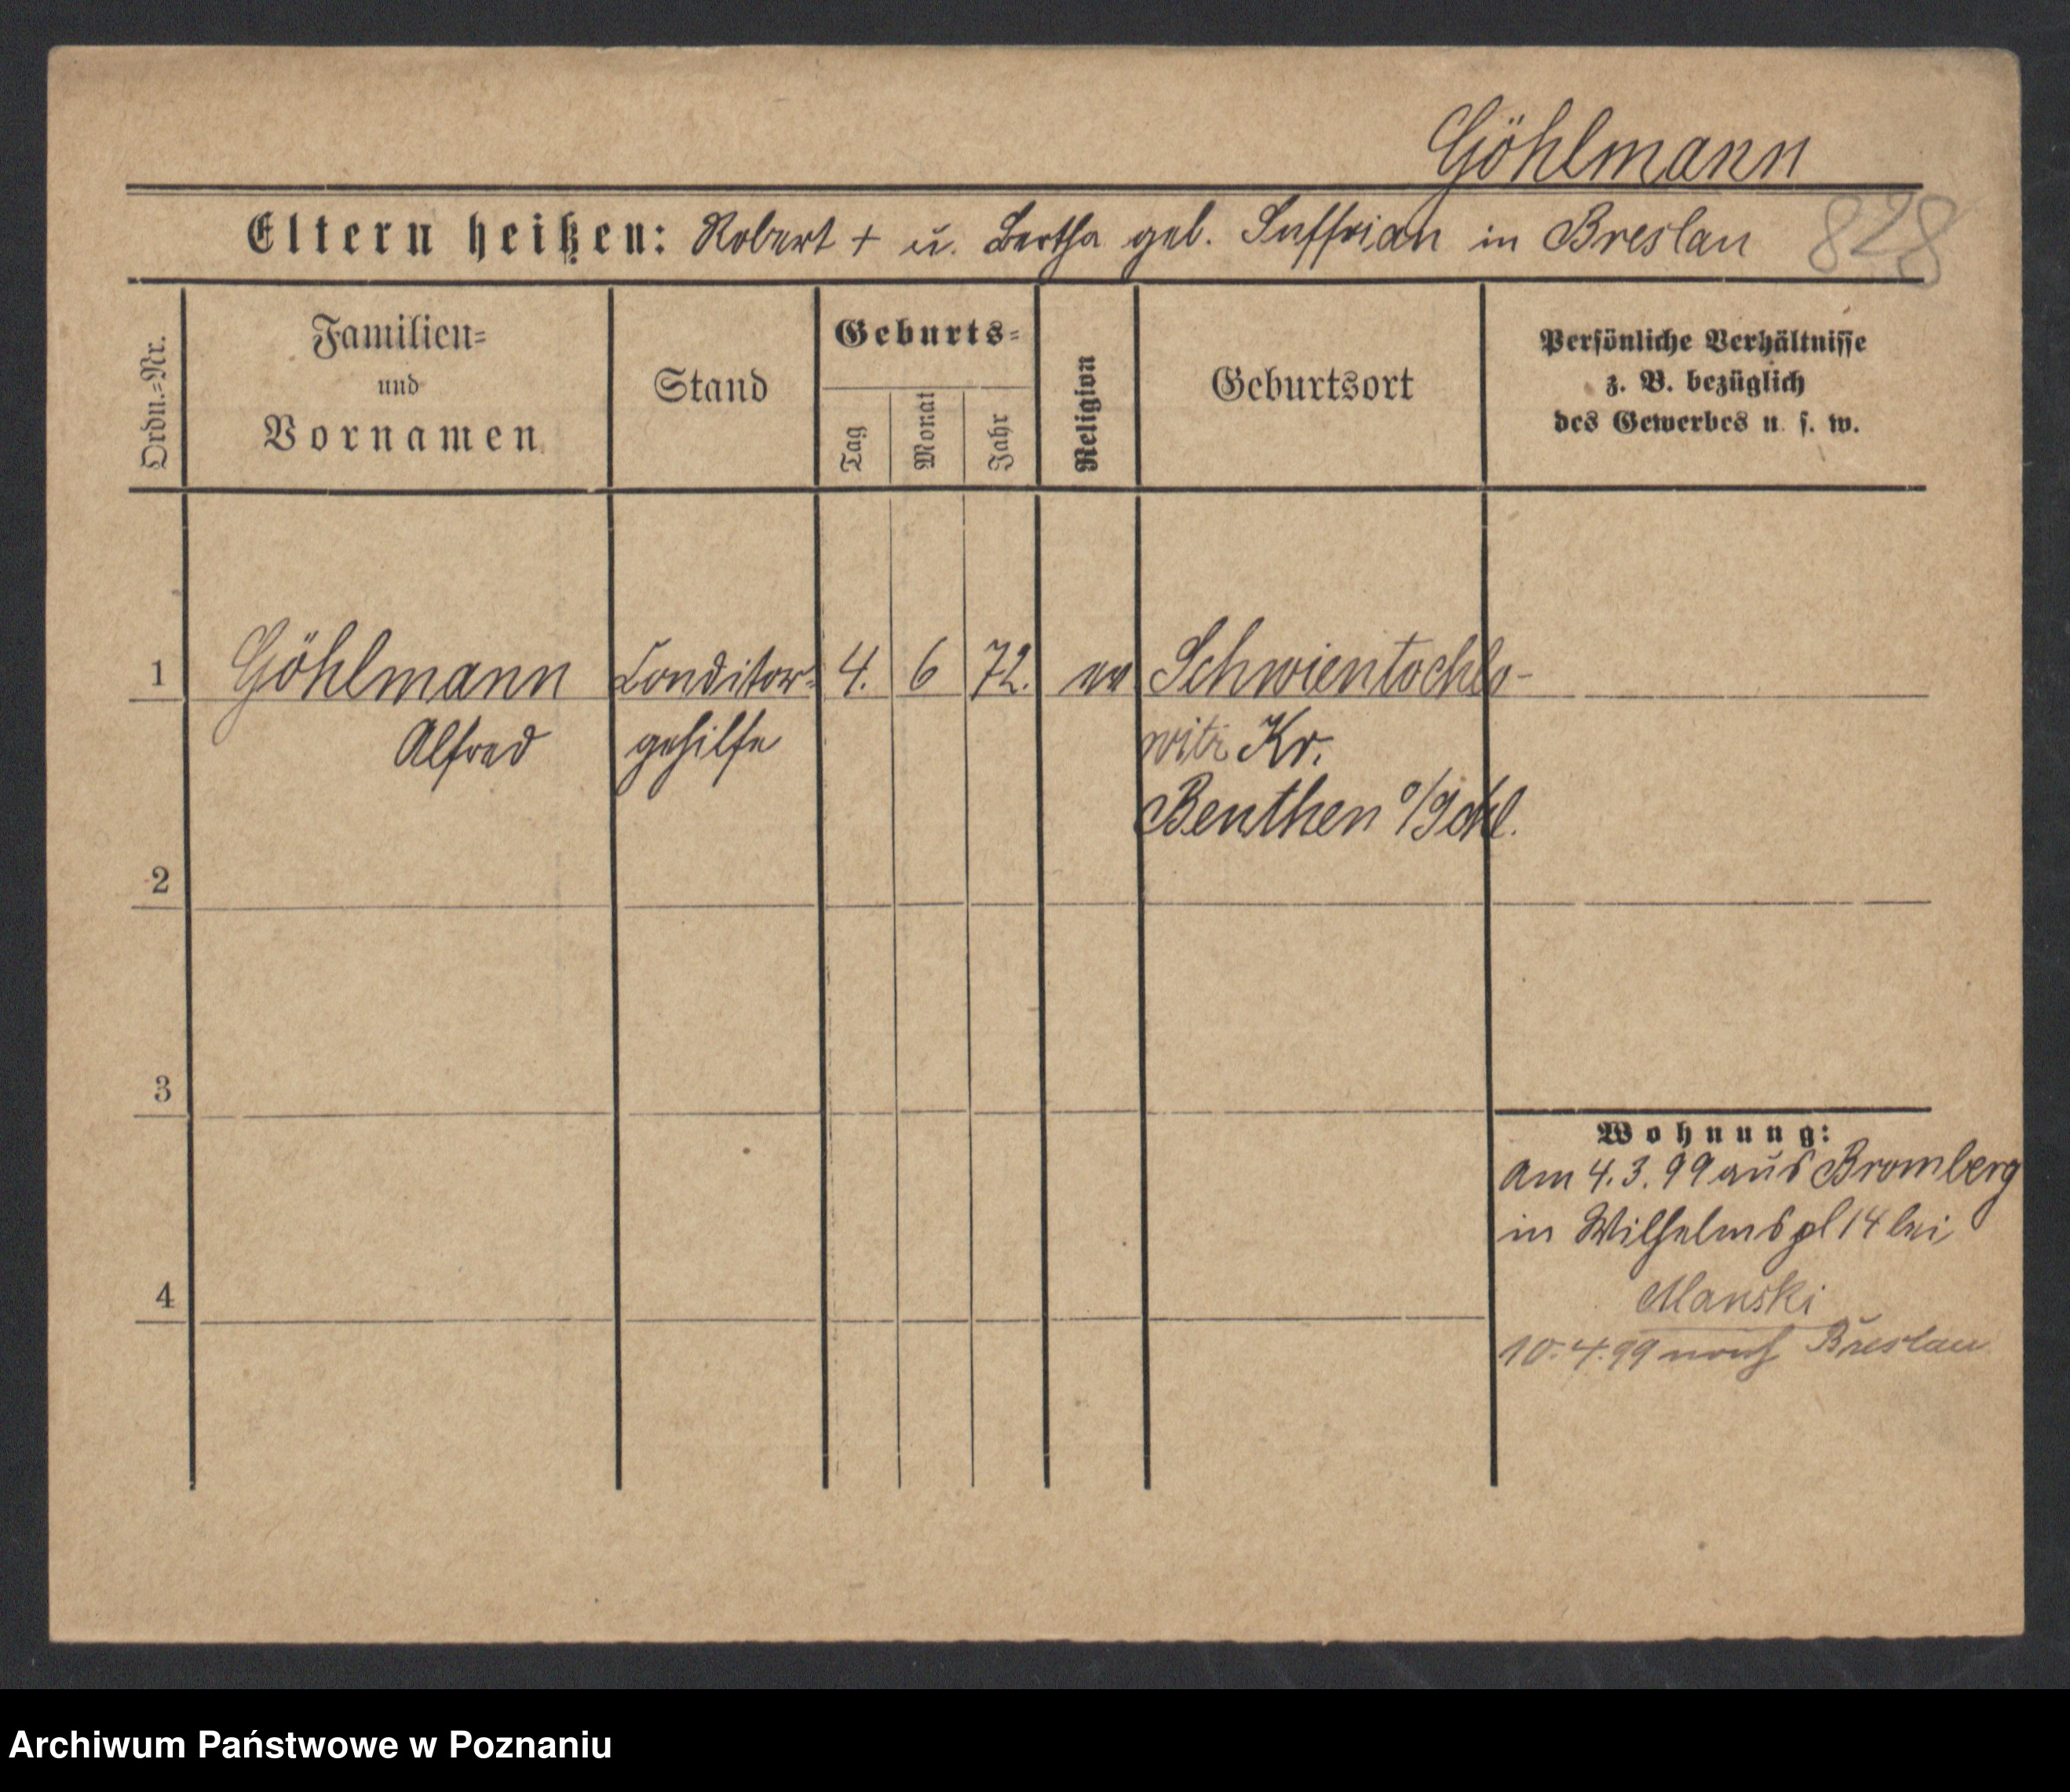 Göhlmann
Eltern heißen: Robert + u. Bertha geb. Suffrian in Breslau
828
Ordn.=Nr.
Familien=
und
Vornamen
Stand
Geburts=
Tag
Monat
Jahr
Religion
Geburtsort
Persönliche Verhältnisse
z. B. bezüglich
des Gewerbes u. s. w.
1 Göhlmann Conditor= 4. 6 72. ev Schwientochlo-
Alfred gehilfe witz Kr.
Beuthen o/Schl.
2
3
Wohnung:
Am 4.3.99 aus Bromberg
in Wilhelmspl 14 bei
Manski
4
10.4.99 nach Breslau
Archiwum Państwowe w Poznaniu